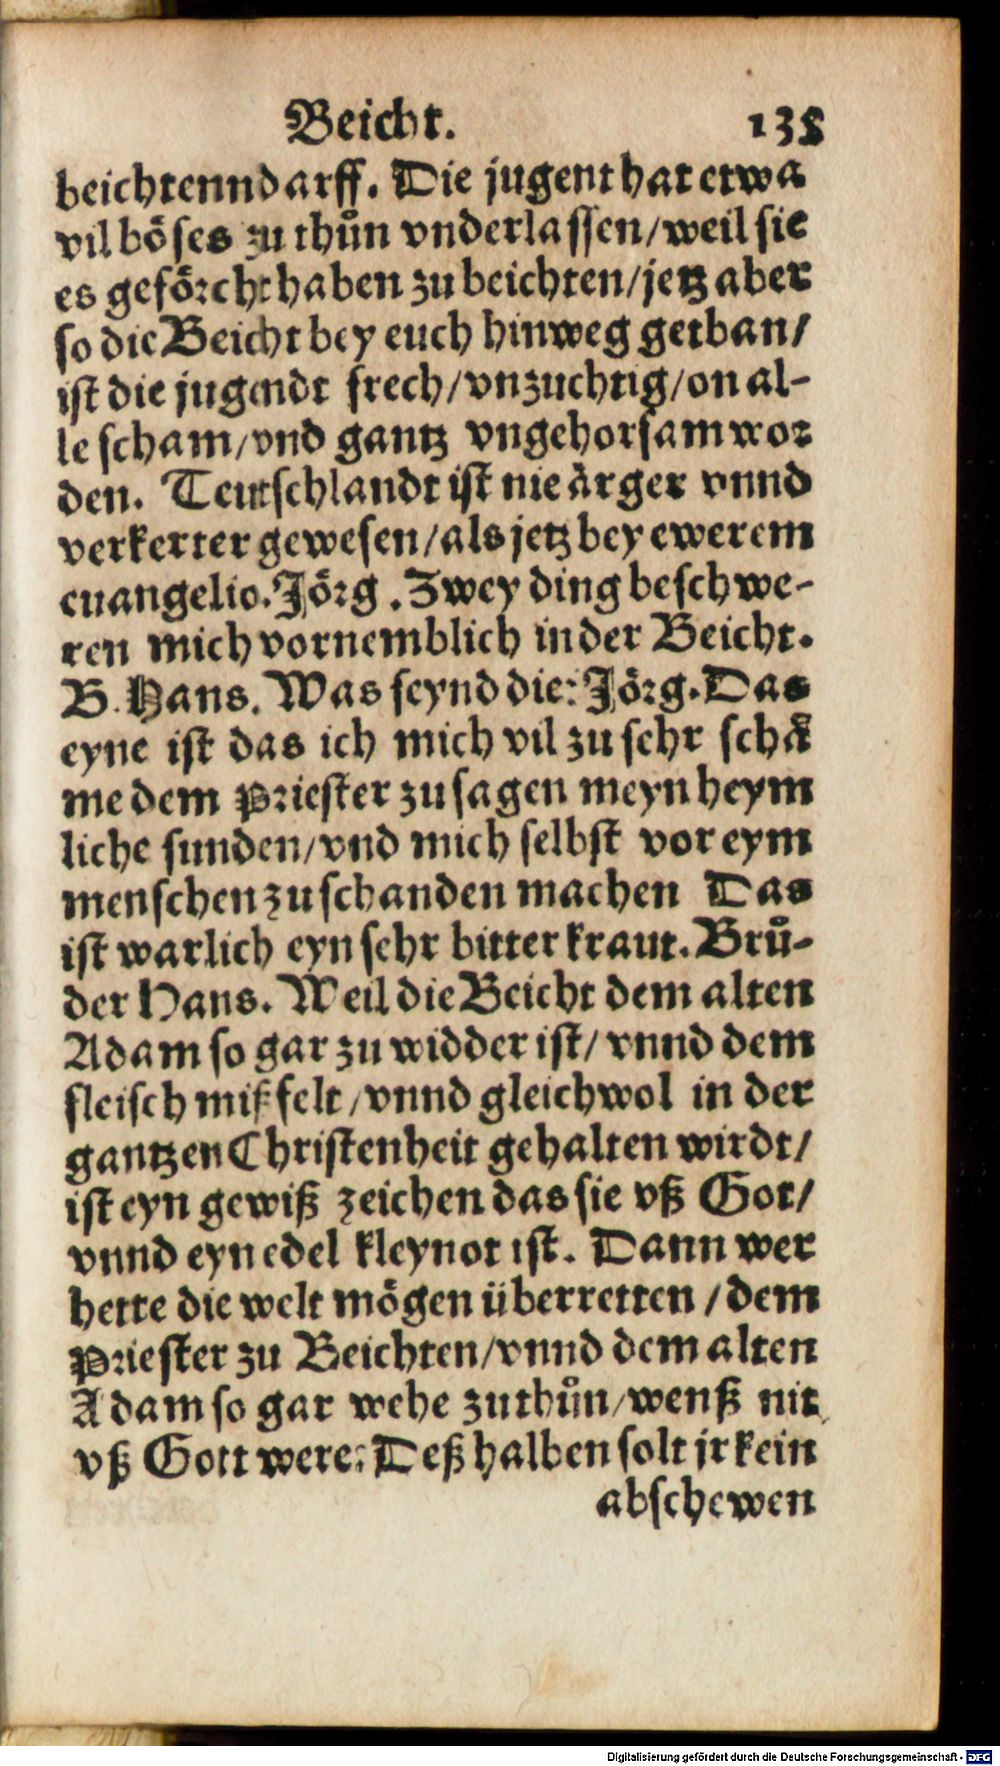 Beicht. 135
beichtenn darff. Die jugent hat etwa
vil böses zu thůn vnderlassen/weil sie
es geförcht haben zu beichten/jetz aber
so die Beicht bey euch hinweg gethan/
ist die jugendt frech/vnzuchtig/on al-
le scham/vnd gantz vngehorsam wor
den. Teutschlandt ist nie ärger vnnd
verkerter gewesen/als jetz bey ewerem
euangelio. Jörg. Zwey ding beschwe-
ren mich vornemblich in der Beicht.
B. Hans. Was seynd die: Jörg. Das
eyne ist das ich mich vil zu sehr schä
me dem Priester zu sagen meyn heym
liche sunden/vnd mich selbst vor eym
menschen zu schanden machen Das
ist warlich eyn sehr bitter kraut. Brů-
der Hans. Weil die Beicht dem alten
Adam so gar zu widder ist/ vnnd dem
fleisch mißfelt/vnnd gleichwol in der
gantzen Christenheit gehalten wirdt/
ist eyn gewiß zeichen das sie vß Got/
vnnd eyn edel kleynot ist. Dann wer
hette die welt mögen überretten/dem
Priester zu Beichten/vnnd dem alten
Adam so gar wehe zuthůn/wenß nit
vß Gott were: Deßhalben solt jr kein
abschewen
Digitalisierung gefördert durch die Deutsche Forschungsgemeinschaft - DFG